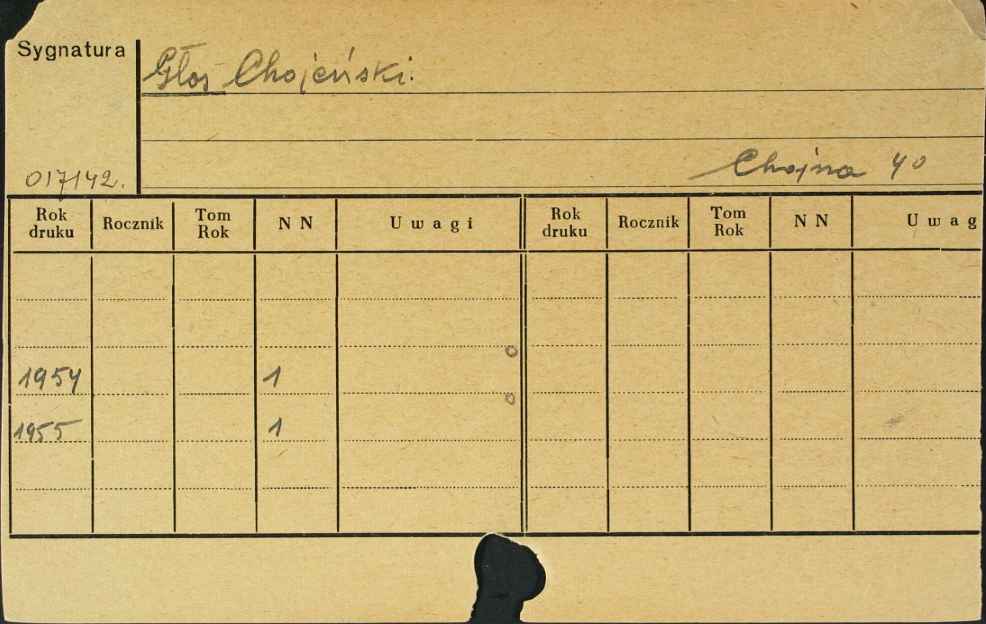 Sygnatura
Głos Chojeński.
Chojna 40
017142.
Rok druku Rocznik Tom Rok N N Uwagi Rok druku Rocznik Tom Rok N N Uwag
1954 1
1955 1